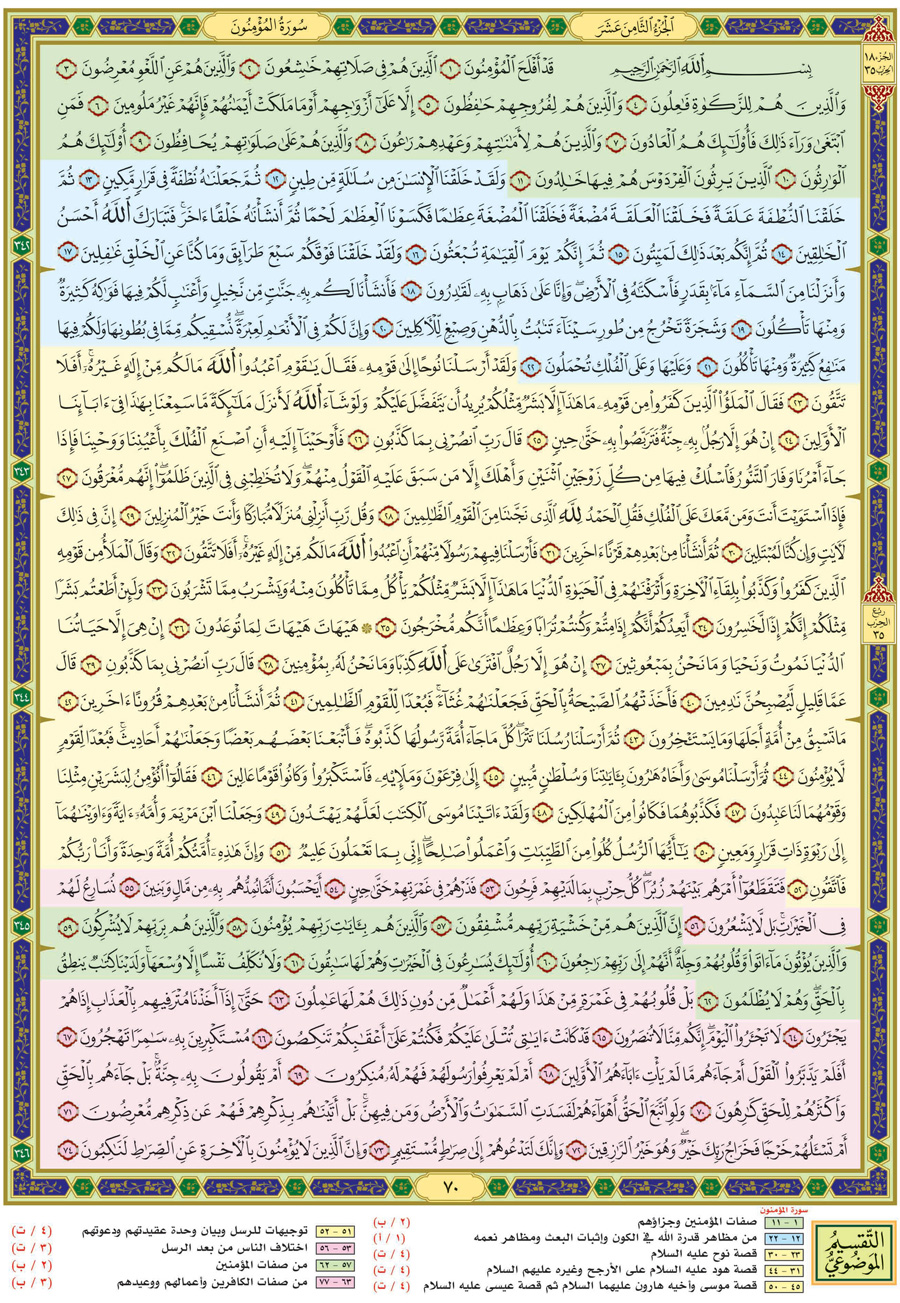 الجُزْءُ الثَّامِنَ عَشَرَ
سُورَةُ المُؤْمِنُونَ
الجُزْء ١٨
الحِزْبُ ٣٥
بِسْمِ ٱللَّهِ ٱلرَّحْمَٰنِ ٱلرَّحِيمِ قَدْ أَفْلَحَ ٱلْمُؤْمِنُونَ ١ ٱلَّذِينَ هُمْ فِى صَلَاتِهِمْ خَٰشِعُونَ ٢ وَٱلَّذِينَ هُمْ عَنِ ٱللَّغْوِ مُعْرِضُونَ ٣
وَٱلَّذِينَ هُمْ لِلزَّكَوٰةِ فَٰعِلُونَ ٤ وَٱلَّذِينَ هُمْ لِفُرُوجِهِمْ حَٰفِظُونَ ٥ إِلَّا عَلَىٰٓ أَزْوَٰجِهِمْ أَوْ مَا مَلَكَتْ أَيْمَٰنُهُمْ فَإِنَّهُمْ غَيْرُ مَلُومِينَ ٦ فَمَنِ
ٱبْتَغَىٰ وَرَآءَ ذَٰلِكَ فَأُو۟لَٰٓئِكَ هُمُ ٱلْعَادُونَ ٧ وَٱلَّذِينَ هُمْ لِأَمَٰنَٰتِهِمْ وَعَهْدِهِمْ رَٰعُونَ ٨ وَٱلَّذِينَ هُمْ عَلَىٰ صَلَوَٰتِهِمْ يُحَافِظُونَ ٩ أُو۟لَٰٓئِكَ هُمُ
ٱلْوَٰرِثُونَ ١٠ ٱلَّذِينَ يَرِثُونَ ٱلْفِرْدَوْسَ هُمْ فِيهَا خَٰلِدُونَ ١١ وَلَقَدْ خَلَقْنَا ٱلْإِنسَٰنَ مِن سُلَٰلَةٍ مِّن طِينٍ ١٢ ثُمَّ جَعَلْنَٰهُ نُطْفَةً فِى قَرَارٍ مَّكِينٍ ١٣ ثُمَّ
خَلَقْنَا ٱلنُّطْفَةَ عَلَقَةً فَخَلَقْنَا ٱلْعَلَقَةَ مُضْغَةً فَخَلَقْنَا ٱلْمُضْغَةَ عِظَٰمًا فَكَسَوْنَا ٱلْعِظَٰمَ لَحْمًا ثُمَّ أَنشَأْنَٰهُ خَلْقًا ءَاخَرَ ۚ فَتَبَارَكَ ٱللَّهُ أَحْسَنُ
ٱلْخَٰلِقِينَ ١٤ ثُمَّ إِنَّكُم بَعْدَ ذَٰلِكَ لَمَيِّتُونَ ١٥ ثُمَّ إِنَّكُمْ يَوْمَ ٱلْقِيَٰمَةِ تُبْعَثُونَ ١٦ وَلَقَدْ خَلَقْنَا فَوْقَكُمْ سَبْعَ طَرَآئِقَ وَمَا كُنَّا عَنِ ٱلْخَلْقِ غَٰفِلِينَ ١٧
وَأَنزَلْنَا مِنَ ٱلسَّمَآءِ مَآءًۢ بِقَدَرٍ فَأَسْكَنَّٰهُ فِى ٱلْأَرْضِ ۖ وَإِنَّا عَلَىٰ ذَهَابٍۭ بِهِۦ لَقَٰدِرُونَ ١٨ فَأَنشَأْنَا لَكُم بِهِۦ جَنَّٰتٍ مِّن نَّخِيلٍ وَأَعْنَٰبٍ لَّكُمْ فِيهَا فَوَٰكِهُ كَثِيرَةٌ
وَمِنْهَا تَأْكُلُونَ ١٩ وَشَجَرَةً تَخْرُجُ مِن طُورِ سَيْنَآءَ تَنۢبُتُ بِٱلدُّهْنِ وَصِبْغٍ لِّلْءَاكِلِينَ ٢٠ وَإِنَّ لَكُمْ فِى ٱلْأَنْعَٰمِ لَعِبْرَةً ۖ نُّسْقِيكُم مِّمَّا فِى بُطُونِهَا وَلَكُمْ فِيهَا
مَنَٰفِعُ كَثِيرَةٌ وَمِنْهَا تَأْكُلُونَ ٢١ وَعَلَيْهَا وَعَلَى ٱلْفُلْكِ تُحْمَلُونَ ٢٢ وَلَقَدْ أَرْسَلْنَا نُوحًا إِلَىٰ قَوْمِهِۦ فَقَالَ يَٰقَوْمِ ٱعْبُدُوا۟ ٱللَّهَ مَا لَكُم مِّنْ إِلَٰهٍ غَيْرُهُۥٓ ۖ أَفَلَا
تَتَّقُونَ ٢٣ فَقَالَ ٱلْمَلَؤُا۟ ٱلَّذِينَ كَفَرُوا۟ مِن قَوْمِهِۦ مَا هَٰذَآ إِلَّا بَشَرٌ مِّثْلُكُمْ يُرِيدُ أَن يَتَفَضَّلَ عَلَيْكُمْ وَلَوْ شَآءَ ٱللَّهُ لَأَنزَلَ مَلَٰٓئِكَةً مَّا سَمِعْنَا بِهَٰذَا فِىٓ ءَابَآئِنَا
ٱلْأَوَّلِينَ ٢٤ إِنْ هُوَ إِلَّا رَجُلٌۢ بِهِۦ جِنَّةٌ فَتَرَبَّصُوا۟ بِهِۦ حَتَّىٰ حِينٍ ٢٥ قَالَ رَبِّ ٱنصُرْنِى بِمَا كَذَّبُونِ ٢٦ فَأَوْحَيْنَآ إِلَيْهِ أَنِ ٱصْنَعِ ٱلْفُلْكَ بِأَعْيُنِنَا وَوَحْيِنَا فَإِذَا
جَآءَ أَمْرُنَا وَفَارَ ٱلتَّنُّورُ ۙ فَٱسْلُكْ فِيهَا مِن كُلٍّ زَوْجَيْنِ ٱثْنَيْنِ وَأَهْلَكَ إِلَّا مَن سَبَقَ عَلَيْهِ ٱلْقَوْلُ مِنْهُمْ ۖ وَلَا تُخَٰطِبْنِى فِى ٱلَّذِينَ ظَلَمُوٓا۟ ۖ إِنَّهُم مُّغْرَقُونَ ٢٧
فَإِذَا ٱسْتَوَيْتَ أَنتَ وَمَن مَّعَكَ عَلَى ٱلْفُلْكِ فَقُلِ ٱلْحَمْدُ لِلَّهِ ٱلَّذِى نَجَّىٰنَا مِنَ ٱلْقَوْمِ ٱلظَّٰلِمِينَ ٢٨ وَقُل رَّبِّ أَنزِلْنِى مُنزَلًا مُّبَارَكًا وَأَنتَ خَيْرُ ٱلْمُنزِلِينَ ٢٩ إِنَّ فِى ذَٰلِكَ
لَءَايَٰتٍ وَإِن كُنَّا لَمُبْتَلِينَ ٣٠ ثُمَّ أَنشَأْنَا مِنۢ بَعْدِهِمْ قَرْنًا ءَاخَرِينَ ٣١ فَأَرْسَلْنَا فِيهِمْ رَسُولًا مِّنْهُمْ أَنِ ٱعْبُدُوا۟ ٱللَّهَ مَا لَكُم مِّنْ إِلَٰهٍ غَيْرُهُۥٓ ۖ أَفَلَا تَتَّقُونَ ٣٢ وَقَالَ ٱلْمَلَأُ مِن قَوْمِهِ
ٱلَّذِينَ كَفَرُوا۟ وَكَذَّبُوا۟ بِلِقَآءِ ٱلْءَاخِرَةِ وَأَتْرَفْنَٰهُمْ فِى ٱلْحَيَوٰةِ ٱلدُّنْيَا مَا هَٰذَآ إِلَّا بَشَرٌ مِّثْلُكُمْ يَأْكُلُ مِمَّا تَأْكُلُونَ مِنْهُ وَيَشْرَبُ مِمَّا تَشْرَبُونَ ٣٣ وَلَئِنْ أَطَعْتُم بَشَرًا
مِّثْلَكُمْ إِنَّكُمْ إِذًا لَّخَٰسِرُونَ ٣٤ أَيَعِدُكُمْ أَنَّكُمْ إِذَا مِتُّمْ وَكُنتُمْ تُرَابًا وَعِظَٰمًا أَنَّكُم مُّخْرَجُونَ ٣٥ ۞ هَيْهَاتَ هَيْهَاتَ لِمَا تُوعَدُونَ ٣٦ إِنْ هِىَ إِلَّا حَيَاتُنَا
ٱلدُّنْيَا نَمُوتُ وَنَحْيَا وَمَا نَحْنُ بِمَبْعُوثِينَ ٣٧ إِنْ هُوَ إِلَّا رَجُلٌ ٱفْتَرَىٰ عَلَى ٱللَّهِ كَذِبًا وَمَا نَحْنُ لَهُۥ بِمُؤْمِنِينَ ٣٨ قَالَ رَبِّ ٱنصُرْنِى بِمَا كَذَّبُونِ ٣٩ قَالَ
عَمَّا قَلِيلٍ لَّيُصْبِحُنَّ نَٰدِمِينَ ٤٠ فَأَخَذَتْهُمُ ٱلصَّيْحَةُ بِٱلْحَقِّ فَجَعَلْنَٰهُمْ غُثَآءً ۚ فَبُعْدًا لِّلْقَوْمِ ٱلظَّٰلِمِينَ ٤١ ثُمَّ أَنشَأْنَا مِنۢ بَعْدِهِمْ قُرُونًا ءَاخَرِينَ ٤٢
مَا تَسْبِقُ مِنْ أُمَّةٍ أَجَلَهَا وَمَا يَسْتَـْٔخِرُونَ ٤٣ ثُمَّ أَرْسَلْنَا رُسُلَنَا تَتْرَا ۖ كُلَّ مَا جَآءَ أُمَّةً رَّسُولُهَا كَذَّبُوهُ ۚ فَأَتْبَعْنَا بَعْضَهُم بَعْضًا وَجَعَلْنَٰهُمْ أَحَادِيثَ ۚ فَبُعْدًا لِّقَوْمٍ
لَّا يُؤْمِنُونَ ٤٤ ثُمَّ أَرْسَلْنَا مُوسَىٰ وَأَخَاهُ هَٰرُونَ بِـَٔايَٰتِنَا وَسُلْطَٰنٍ مُّبِينٍ ٤٥ إِلَىٰ فِرْعَوْنَ وَمَلَإِي۟هِۦ فَٱسْتَكْبَرُوا۟ وَكَانُوا۟ قَوْمًا عَالِينَ ٤٦ فَقَالُوٓا۟ أَنُؤْمِنُ لِبَشَرَيْنِ مِثْلِنَا
وَقَوْمُهُمَا لَنَا عَٰبِدُونَ ٤٧ فَكَذَّبُوهُمَا فَكَانُوا۟ مِنَ ٱلْمُهْلَكِينَ ٤٨ وَلَقَدْ ءَاتَيْنَا مُوسَى ٱلْكِتَٰبَ لَعَلَّهُمْ يَهْتَدُونَ ٤٩ وَجَعَلْنَا ٱبْنَ مَرْيَمَ وَأُمَّهُۥٓ ءَايَةً وَءَاوَيْنَٰهُمَآ
إِلَىٰ رَبْوَةٍ ذَاتِ قَرَارٍ وَمَعِينٍ ٥٠ يَٰٓأَيُّهَا ٱلرُّسُلُ كُلُوا۟ مِنَ ٱلطَّيِّبَٰتِ وَٱعْمَلُوا۟ صَٰلِحًا ۖ إِنِّى بِمَا تَعْمَلُونَ عَلِيمٌ ٥١ وَإِنَّ هَٰذِهِۦٓ أُمَّتُكُمْ أُمَّةً وَٰحِدَةً وَأَنَا۠ رَبُّكُمْ
فَٱتَّقُونِ ٥٢ فَتَقَطَّعُوٓا۟ أَمْرَهُم بَيْنَهُمْ زُبُرًا ۖ كُلُّ حِزْبٍۭ بِمَا لَدَيْهِمْ فَرِحُونَ ٥٣ فَذَرْهُمْ فِى غَمْرَتِهِمْ حَتَّىٰ حِينٍ ٥٤ أَيَحْسَبُونَ أَنَّمَا نُمِدُّهُم بِهِۦ مِن مَّالٍ وَبَنِينَ ٥٥ نُسَارِعُ لَهُمْ
فِى ٱلْخَيْرَٰتِ ۚ بَل لَّا يَشْعُرُونَ ٥٦ إِنَّ ٱلَّذِينَ هُم مِّنْ خَشْيَةِ رَبِّهِم مُّشْفِقُونَ ٥٧ وَٱلَّذِينَ هُم بِـَٔايَٰتِ رَبِّهِمْ يُؤْمِنُونَ ٥٨ وَٱلَّذِينَ هُم بِرَبِّهِمْ لَا يُشْرِكُونَ ٥٩
وَٱلَّذِينَ يُؤْتُونَ مَآ ءَاتَوا۟ وَّقُلُوبُهُمْ وَجِلَةٌ أَنَّهُمْ إِلَىٰ رَبِّهِمْ رَٰجِعُونَ ٦٠ أُو۟لَٰٓئِكَ يُسَٰرِعُونَ فِى ٱلْخَيْرَٰتِ وَهُمْ لَهَا سَٰبِقُونَ ٦١ وَلَا نُكَلِّفُ نَفْسًا إِلَّا وُسْعَهَا ۖ وَلَدَيْنَا كِتَٰبٌ يَنطِقُ
بِٱلْحَقِّ ۚ وَهُمْ لَا يُظْلَمُونَ ٦٢ بَلْ قُلُوبُهُمْ فِى غَمْرَةٍ مِّنْ هَٰذَا وَلَهُمْ أَعْمَٰلٌ مِّن دُونِ ذَٰلِكَ هُمْ لَهَا عَٰمِلُونَ ٦٣ حَتَّىٰٓ إِذَآ أَخَذْنَا مُتْرَفِيهِم بِٱلْعَذَابِ إِذَا هُمْ
يَجْـَٔرُونَ ٦٤ لَا تَجْـَٔرُوا۟ ٱلْيَوْمَ ۖ إِنَّكُم مِّنَّا لَا تُنصَرُونَ ٦٥ قَدْ كَانَتْ ءَايَٰتِى تُتْلَىٰ عَلَيْكُمْ فَكُنتُمْ عَلَىٰٓ أَعْقَٰبِكُمْ تَنكِصُونَ ٦٦ مُسْتَكْبِرِينَ بِهِۦ سَٰمِرًا تَهْجُرُونَ ٦٧
أَفَلَمْ يَدَّبَّرُوا۟ ٱلْقَوْلَ أَمْ جَآءَهُم مَّا لَمْ يَأْتِ ءَابَآءَهُمُ ٱلْأَوَّلِينَ ٦٨ أَمْ لَمْ يَعْرِفُوا۟ رَسُولَهُمْ فَهُمْ لَهُۥ مُنكِرُونَ ٦٩ أَمْ يَقُولُونَ بِهِۦ جِنَّةٌۢ ۚ بَلْ جَآءَهُم بِٱلْحَقِّ
وَأَكْثَرُهُمْ لِلْحَقِّ كَٰرِهُونَ ٧٠ وَلَوِ ٱتَّبَعَ ٱلْحَقُّ أَهْوَآءَهُمْ لَفَسَدَتِ ٱلسَّمَٰوَٰتُ وَٱلْأَرْضُ وَمَن فِيهِنَّ ۚ بَلْ أَتَيْنَٰهُم بِذِكْرِهِمْ فَهُمْ عَن ذِكْرِهِم مُّعْرِضُونَ ٧١
أَمْ تَسْـَٔلُهُمْ خَرْجًا فَخَرَاجُ رَبِّكَ خَيْرٌ ۖ وَهُوَ خَيْرُ ٱلرَّٰزِقِينَ ٧٢ وَإِنَّكَ لَتَدْعُوهُمْ إِلَىٰ صِرَٰطٍ مُّسْتَقِيمٍ ٧٣ وَإِنَّ ٱلَّذِينَ لَا يُؤْمِنُونَ بِٱلْءَاخِرَةِ عَنِ ٱلصِّرَٰطِ لَنَٰكِبُونَ ٧٤
٣٤٢
٣٤٣
٣٤٤
٣٤٥
٣٤٦
رُبْعُ
الحِزْب
٣٥
٧٠
التَّقْسِيمُ
المَوْضُوعِيُّ
سورة المؤمنون
١ - ١١ صفات المؤمنين وجزاؤهم (٢ / ب)
١٢ - ٢٢ من مظاهر قدرة الله في الكون وإثبات البعث ومظاهر نعمه (١ / أ)
٢٣ - ٣٠ قصة نوح عليه السلام (٤ / ت)
٣١ - ٤٤ قصة هود عليه السلام على الأرجح وغيره عليهم السلام (٤ / ت)
٤٥ - ٥٠ قصة موسى وأخيه هارون عليهما السلام ثم قصة عيسى عليه السلام (٤ / ت)
٥١ - ٥٢ توجيهات للرسل وبيان وحدة عقيدتهم ودعوتهم (٤ / ت)
٥٣ - ٥٦ اختلاف الناس من بعد الرسل (٣ / ت)
٥٧ - ٦٢ من صفات المؤمنين (٢ / ب)
٦٣ - ٧٧ من صفات الكافرين وأعمالهم ووعيدهم (٣ / ب)